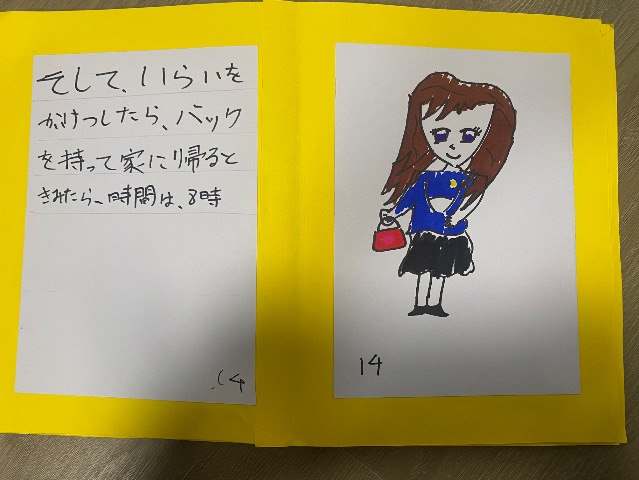 そして、いらいを
かけつしたら、バック
を持って家に帰ると
きめたら、時間は、8時
14
14